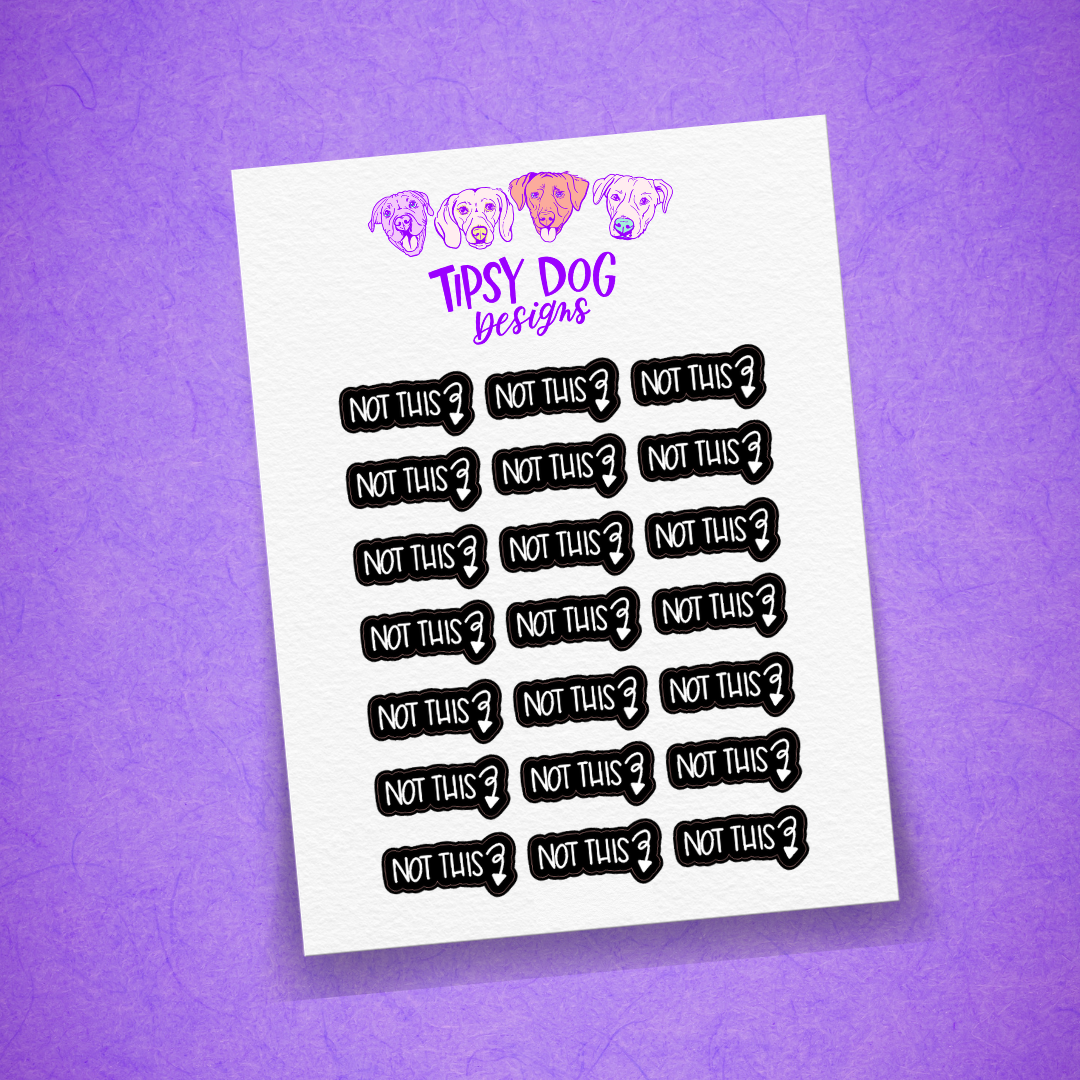 TIPSY DOG
Designs
NOT THIS NOT THIS NOT THIS
NOT THIS NOT THIS NOT THIS
NOT THIS NOT THIS NOT THIS
NOT THIS NOT THIS NOT THIS
NOT THIS NOT THIS NOT THIS
NOT THIS NOT THIS NOT THIS
NOT THIS NOT THIS NOT THIS